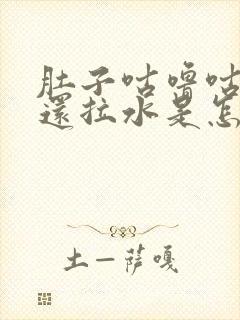 肚子咕噜咕
還拉水是怎
土一萨嘎